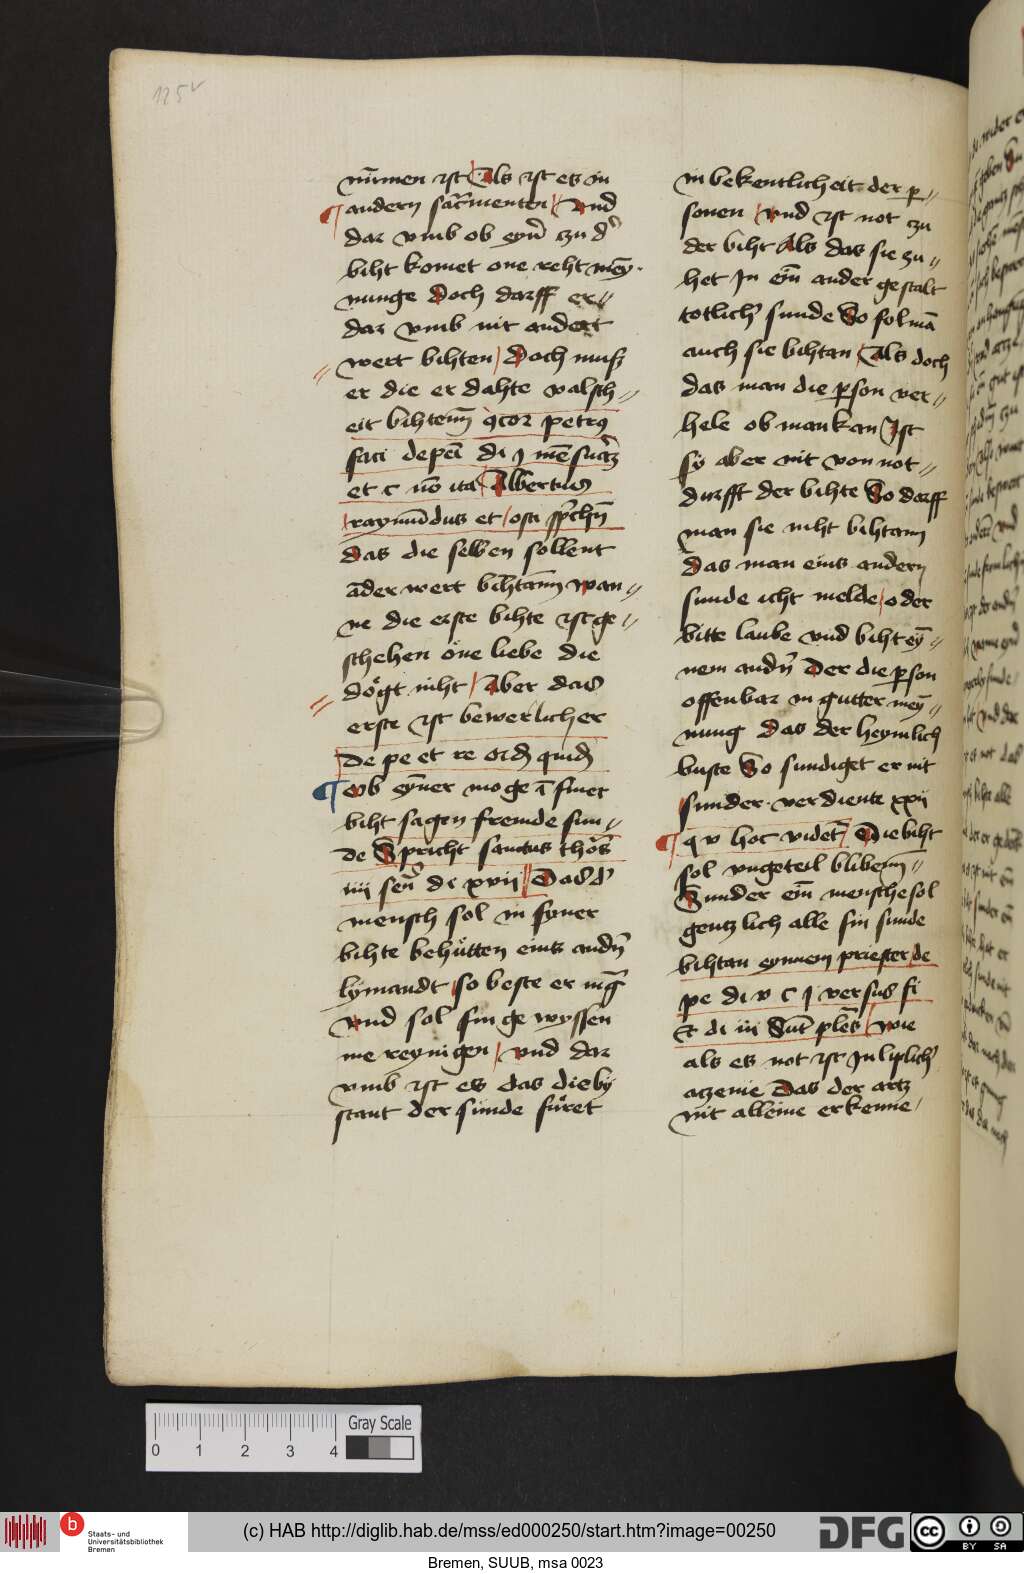 125v
nūmen ist Als ist es in
andern sacr̄menten Vnd
dar vmb ob eyn̄ zu d'
biht komet one reht mey̅
nunge Doch darff er
dar vmb nit andert
wert bihten Doch muß
er die erdahte valsch
eit bihtenn̄ qcor petrꝰ
saci de peī di j mēsuꝛꝫ
et c nō ita Albertus
raymūdus et osti sp̄chn̄
das die selben sollent
āder wert bihtann wan
ne die erste bihte ist ge
schehen one liebe die
dögt niht Aber das
erste ist bewerlicher
De pe et re ord quid
Ob eyn̄er moge ī siner
biht sagen fremde sun
de Spricht sanctus thōs
iiij sen̄ di xvij Das d'
mensch sol in syner
bihte behütten eins andn̄
lymandt so beste er mag
vnd sol sin gewyssen
me reynigen vnd dar
vmb ist es das die by
stant der sünde füret
in bekentlicheit der p
sonen vnd ist not zu
der biht Als das sie zu
het Jn ein̄ ander gestalt
totlich' sunde So sol mā
auch sie bihtan Als doch
das man die pson ver
hele ob man kan Jst
sy aber nit von not
durfft der bihte So darff
man sie niht bihtann
Das man eins andern
sunde icht melde oder
bitte laube vnd biht ey̅
nem andn̄ Der die pson
offenbar in gutter mey̅
nung das der heymlich
buste So sundiget er nit
sunder verdiente xxij
q v hoc videt̄ Die biht
sol vngeteil blibenn
Sunder ein̄ mensche sol
gentzlich alle sin sunde
bihtan eynnem priester de
pe di v c j versus fi
Et di iij Sūt pleēs wie
als es not ist Jn liplich'
arzenie Das der artz
nit alleine erkenne
0 1 2 3 4
Gray Scale
b
Staats- und
Universitätsbibliothek
Bremen
(c) HAB http://diglib.hab.de/mss/ed000250/start.htm?image=00250
DFG
cc
BY SA
Bremen, SUUB, msa 0023